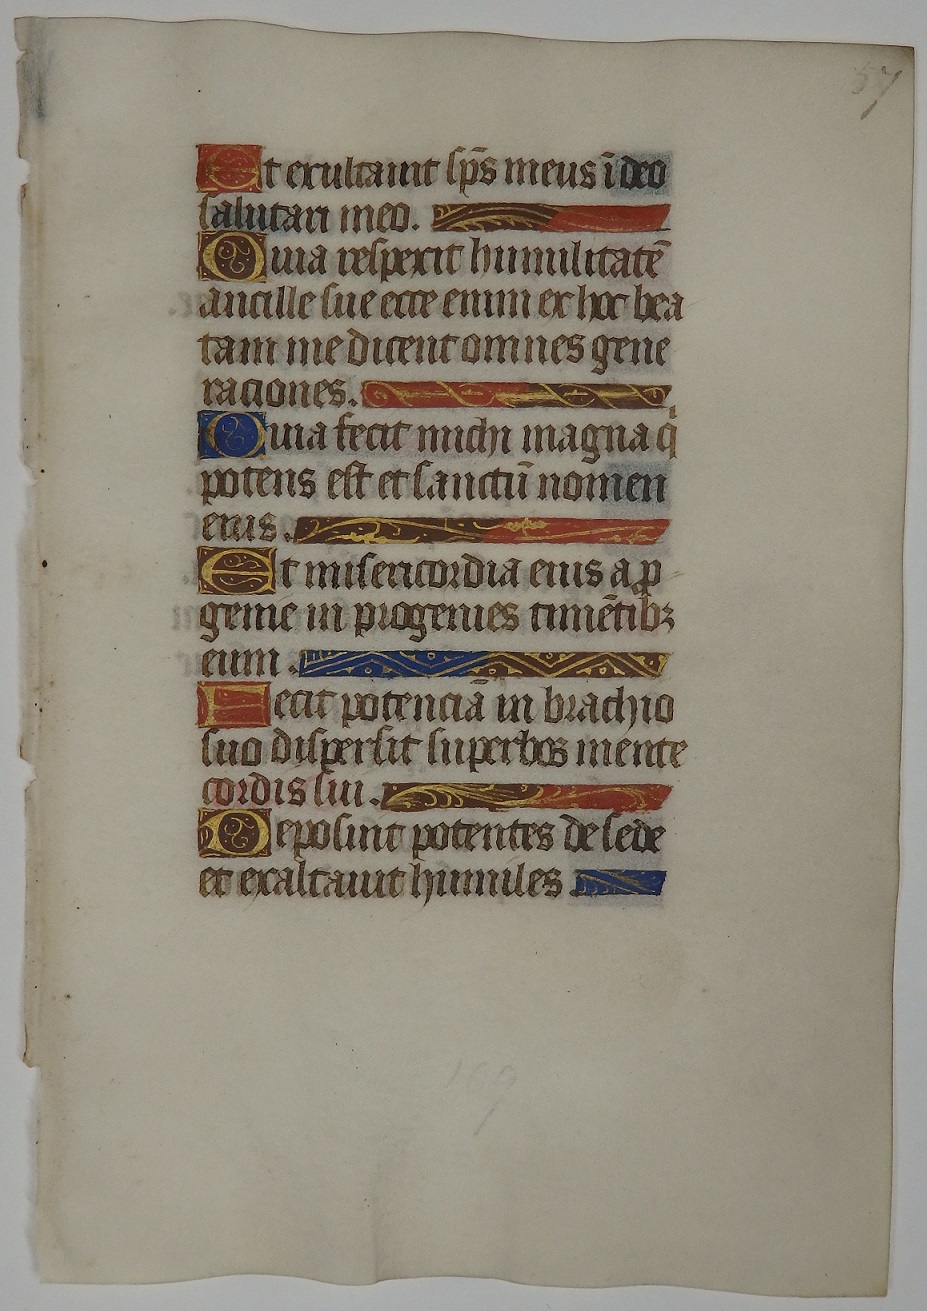 57
Et exultauit sp̄s meus ī deo
salutari meo.
Quia respexit humilitatē
ancille sue ecce enim ex hoc bea
tam me dicent omnes gene
raciones.
Quia fecit michi magna qͥ
potens est et sanctū nomen
eius.
Et misericordia eius a ꝓ
genie in progenies timētibꝫ
eum.
Fecit potenciā in brachio
suo dispersit superbos mente
cordis sui.
Deposuit potentes de sede
et exaltauit humiles
169